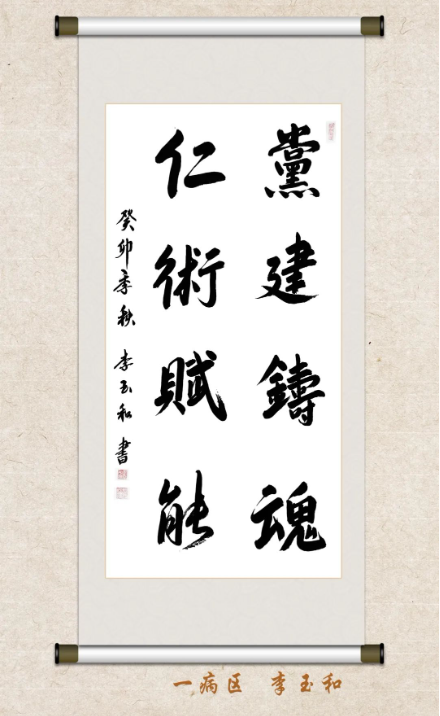 黨建鑄魂
仁術賦能
癸卯季秋 李玉和書
一病区 李玉和